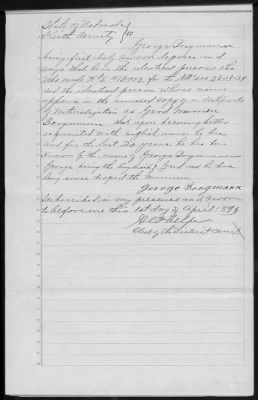 State of Nebraska
Keith County } ss
George Borgmann
being first duly sworn deposes and
says that he is the identical person who
who made H.E. for the NW
and the identical person whose name
appears in the annexed copy of a certificate
of Naturalization as
Borgmann, that upon becoming better
acquainted with english names he has
and for the last 20 years he has been
known by the name of George Borgmann
George being the english of and he has
long since dropt the
George Borgmann
Subscribed in my presence and sworn
to before me this 1st day of April 1893
Clerk of the District Court